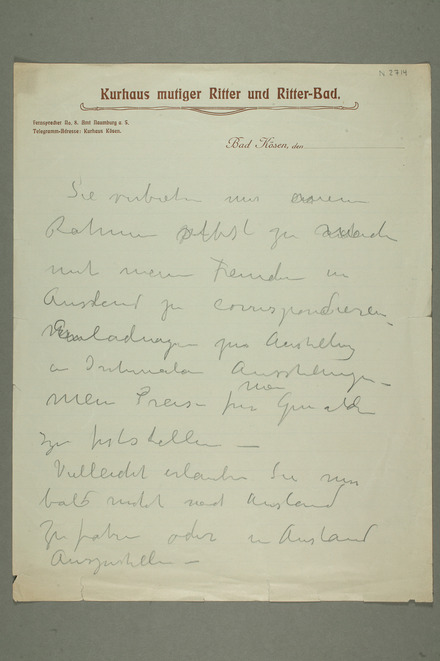 N 2714
Kurhaus mutiger Ritter und Ritter-Bad.
Fernsprecher No. 8. Amt Naumburg a. S.
Telegramm-Adresse: Kurhaus Kösen.
Bad Kösen, den
Sie verbieten mir meinen
Rahmen selbst zu
mit meinen Freunden im
Ausland zu correspondieren
Einladungen zu Ausstellung
an Ausstellungen –
mein
Mein Preise für Gemälde
zu feststellen –
Vielleicht erlauben Sie mir
bald nicht nach Ausland
zu fahren oder in Ausland
Auszustellen –